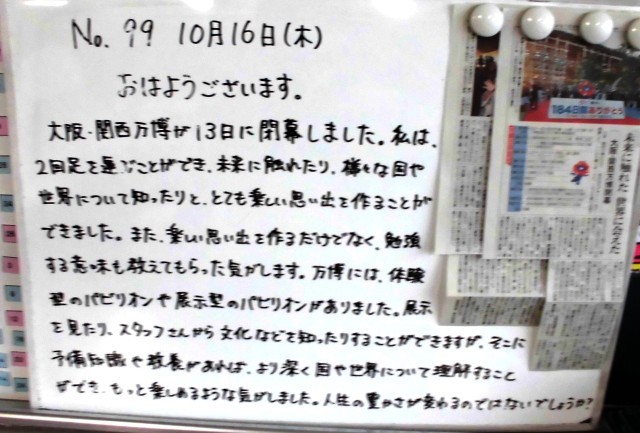 No. 99 10月16日(木)
おはようございます。
大阪・関西万博が13日に閉幕しました。私は、
2回足を運ぶことができ、未来に触れたり、様々な国や
世界について知ったりと、とても楽しい思い出を作ることが
できました。また、楽しい思い出を作るだけでなく、勉強
する意味も教えてもらった気がします。万博には、体験
型のパビリオンや展示型のパビリオンがありました。展示
を見たり、スタッフさんから文化などを知ったりすることができますが、そこに
予備知識や教養があれば、より深く国や世界について理解すること
ができ、もっと楽しめるような気がしました。人生の豊かさが変わるのではないでしょうか?
184日間ありがとう
未来に触れた 世界に会えた
大阪・関西万博閉幕